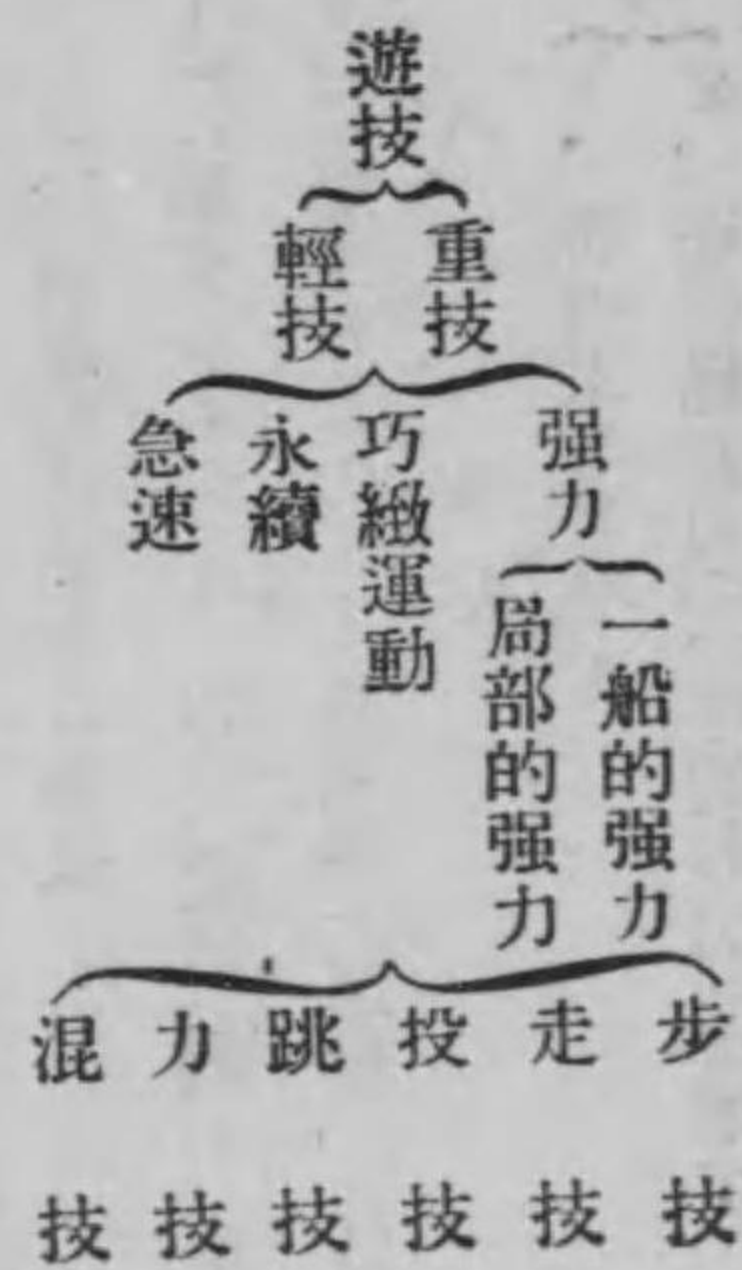 遊技
重技
輕技
强力
巧緻運動
永續
急速
一船的强力
局部的强力
步技
走技
投技
跳技
力技
混技